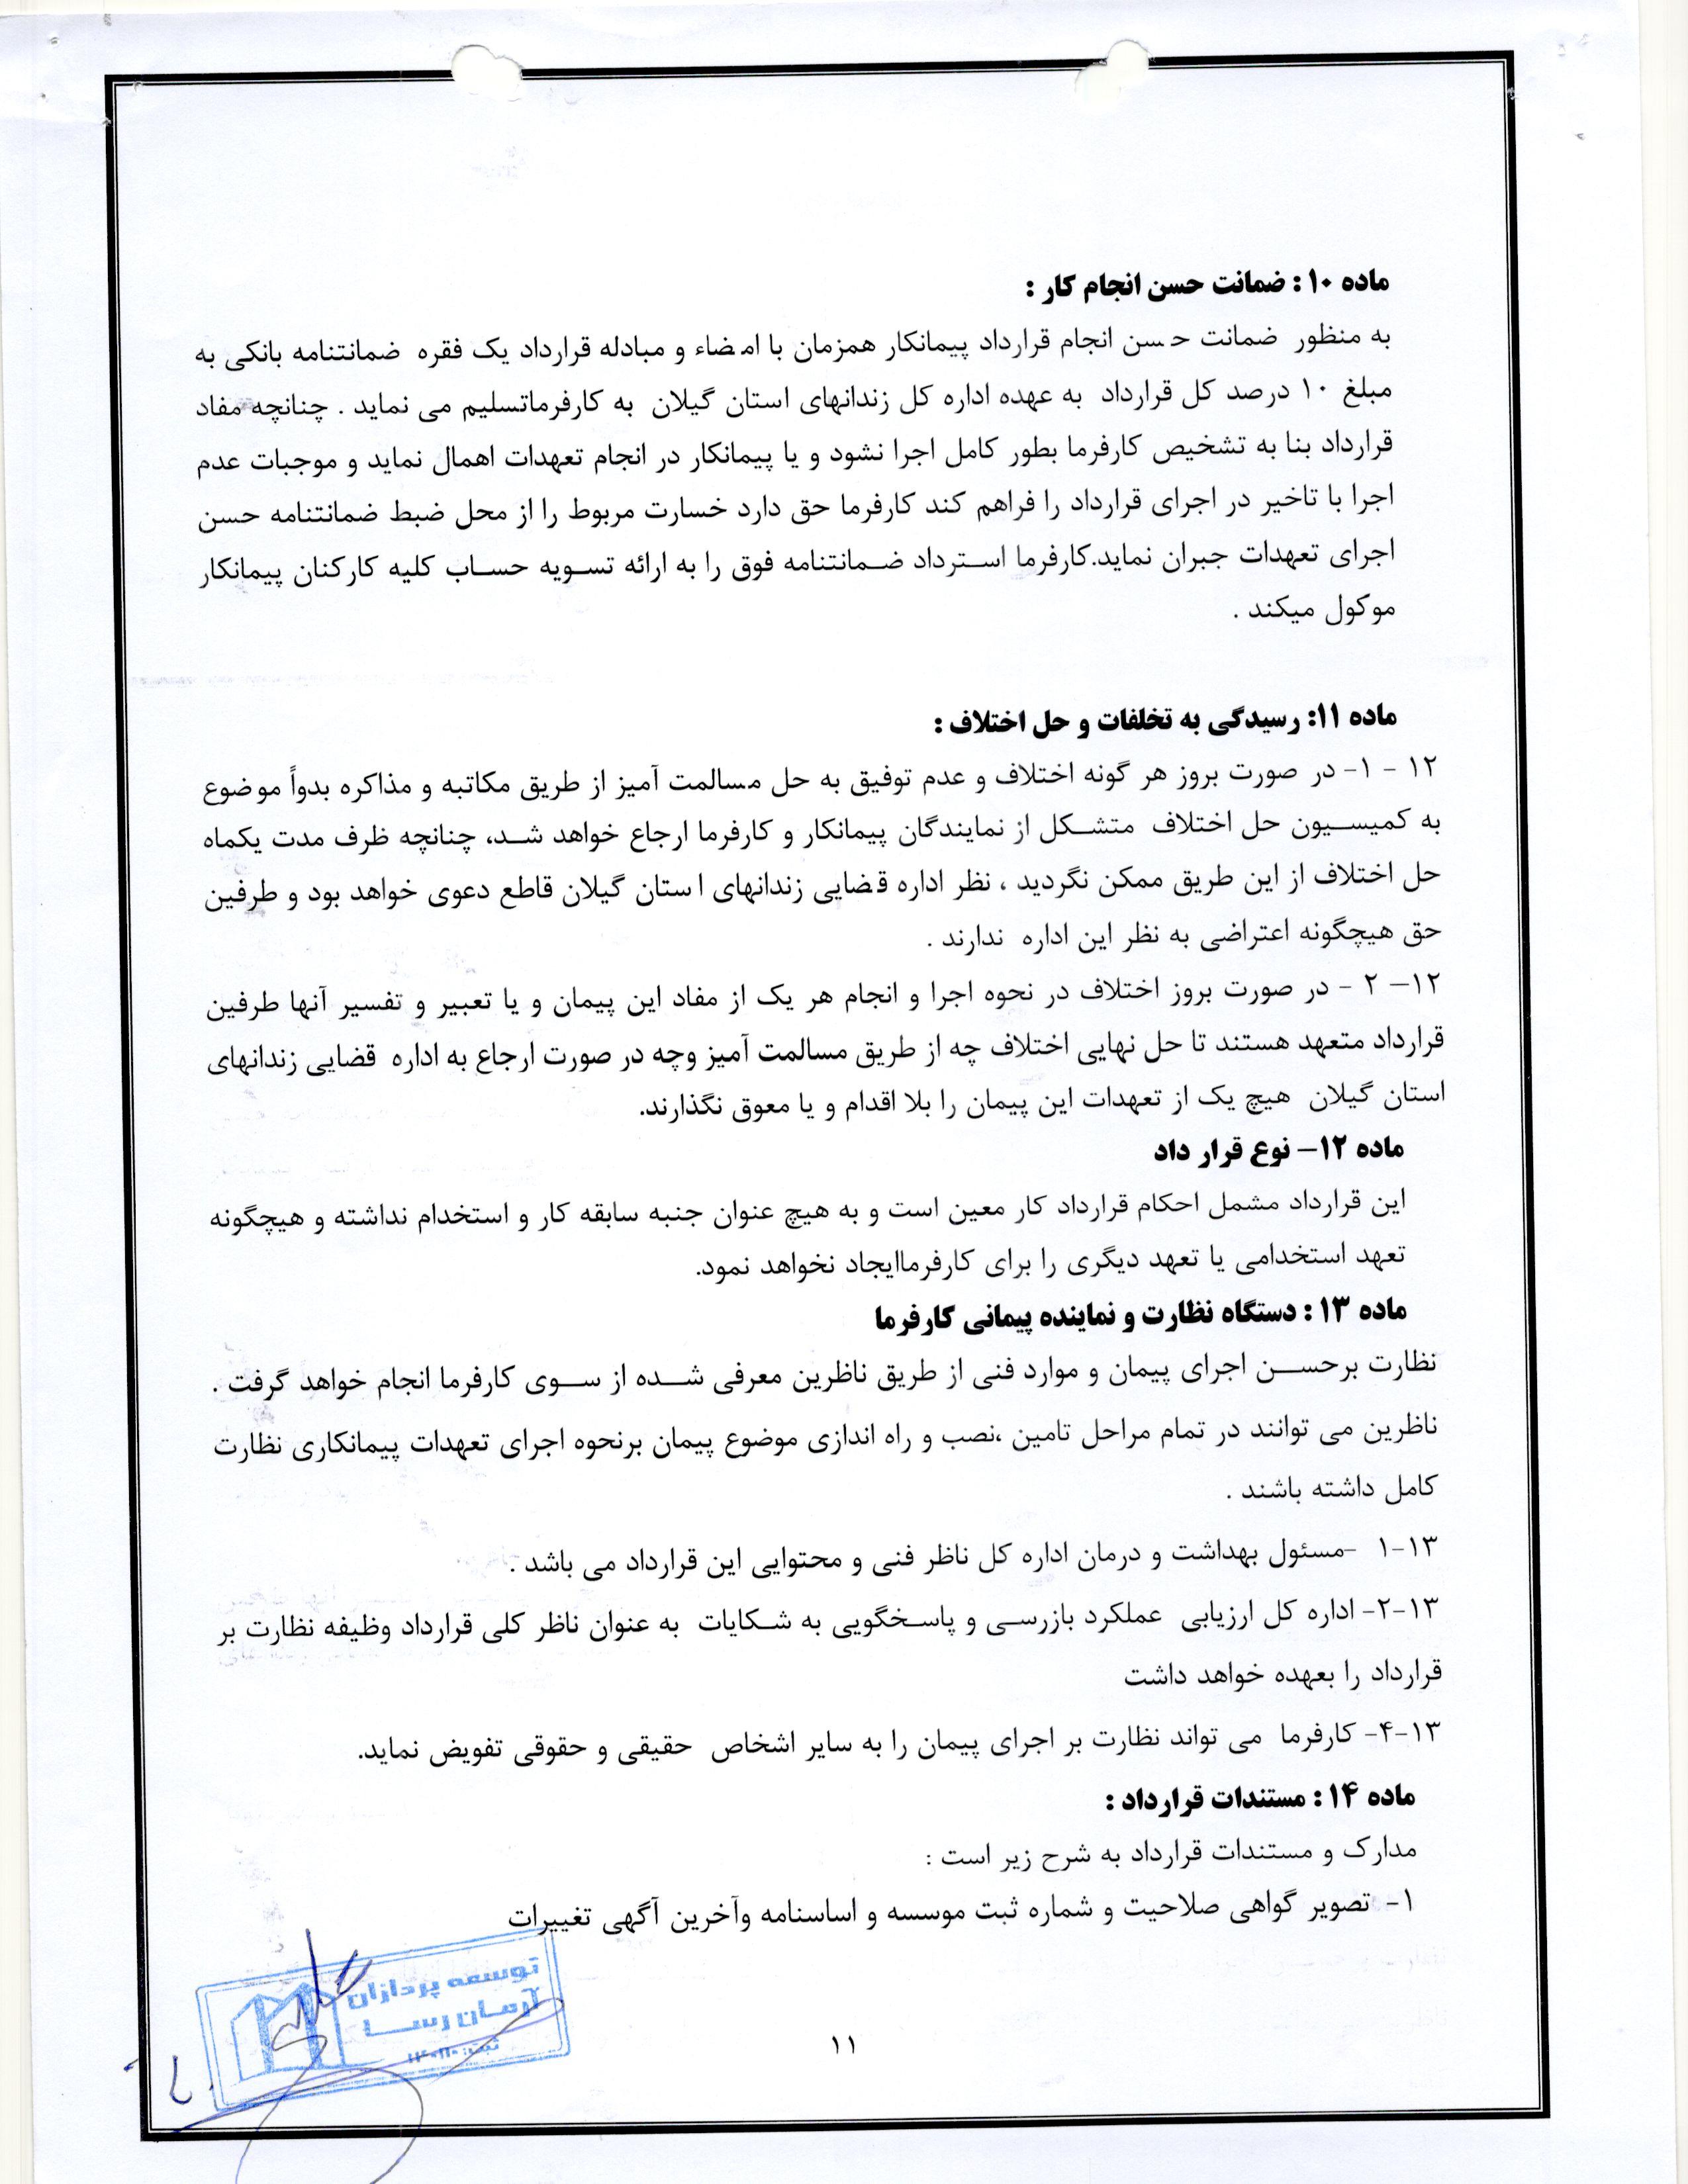 ماده ۱۰ : ضمانت حسن انجام کار :
به منظور ضمانت حسن انجام قرارداد پیمانکار همزمان با امضاء و مبادله قرارداد یک فقره ضمانتنامه بانکی به
مبلغ ۱۰ درصد کل قرارداد به عهده اداره کل زندانهای استان گیلان به کارفرماتسلیم می نماید . چنانچه مفاد
قرارداد بنا به تشخیص کارفرما بطور کامل اجرا نشود و یا پیمانکار در انجام تعهدات اهمال نماید و موجبات عدم
اجرا با تاخیر در اجرای قرارداد را فراهم کند کارفرما حق دارد خسارت مربوط را از محل ضبط ضمانتنامه حسن
اجرای تعهدات جبران نماید.کارفرما استرداد ضمانتنامه فوق را به ارائه تسویه حساب کلیه کارکنان پیمانکار
موکول میکند .
ماده ۱۱: رسیدگی به تخلفات و حل اختلاف :
۱۲ - ۱- در صورت بروز هر گونه اختلاف و عدم توفیق به حل مسالمت آمیز از طریق مکاتبه و مذاکره بدواً موضوع
به کمیسیون حل اختلاف متشکل از نمایندگان پیمانکار و کارفرما ارجاع خواهد شد، چنانچه ظرف مدت یکماه
حل اختلاف از این طریق ممکن نگردید ، نظر اداره قضایی زندانهای استان گیلان قاطع دعوی خواهد بود و طرفین
حق هیچگونه اعتراضی به نظر این اداره ندارند .
۱۲– ۲ - در صورت بروز اختلاف در نحوه اجرا و انجام هر یک از مفاد این پیمان و یا تعبیر و تفسیر آنها طرفین
قرارداد متعهد هستند تا حل نهایی اختلاف چه از طریق مسالمت آمیز وچه در صورت ارجاع به اداره قضایی زندانهای
استان گیلان هیچ یک از تعهدات این پیمان را بلا اقدام و یا معوق نگذارند.
ماده ۱۲– نوع قرار داد
این قرارداد مشمل احکام قرارداد کار معین است و به هیچ عنوان جنبه سابقه کار و استخدام نداشته و هیچگونه
تعهد استخدامی یا تعهد دیگری را برای کارفرماایجاد نخواهد نمود.
ماده ۱۳ : دستگاه نظارت و نماینده پیمانی کارفرما
نظارت برحسن اجرای پیمان و موارد فنی از طریق ناظرین معرفی شده از سوی کارفرما انجام خواهد گرفت .
ناظرین می توانند در تمام مراحل تامین ،نصب و راه اندازی موضوع پیمان برنحوه اجرای تعهدات پیمانکاری نظارت
کامل داشته باشند .
۱۳-۱ -مسئول بهداشت و درمان اداره کل ناظر فنی و محتوایی این قرارداد می باشد .
۱۳-۲- اداره کل ارزیابی عملکرد بازرسی و پاسخگویی به شکایات به عنوان ناظر کلی قرارداد وظیفه نظارت بر
قرارداد را بعهده خواهد داشت
۱۳-۴- کارفرما می تواند نظارت بر اجرای پیمان را به سایر اشخاص حقیقی و حقوقی تفویض نماید.
ماده ۱۴ : مستندات قرارداد :
مدارک و مستندات قرارداد به شرح زیر است :
۱- تصویر گواهی صلاحیت و شماره ثبت موسسه و اساسنامه وآخرین آگهی تغییرات
توسعه پردازان
آرمان رسا
ثبت:
۱۱